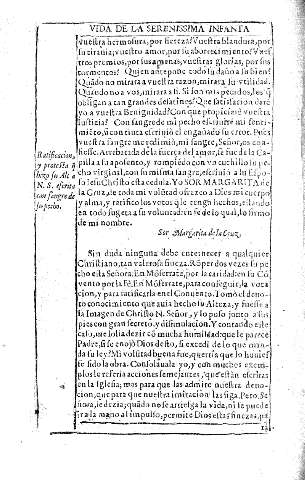 VIDA DE LA SERENISSIMA INFANTA
vuestra hermosura, por fiereza? Vuestra blandura, por
su tirania; vuestro amor, por su aborrecimiento? Vues-
tros premios, por sus penas, vuestras glorias, por sus
tormentos? Quien antepone todo su daño a su bien?
Quãdo no mirara vuestra razon, mirara su vtilidad.
Quando no a vos, mirara a si. Si don mis pecidos, les
obligan a tan grandes desatinos? Que satisfacion darè
yo a vuestra Benignidad? Con que propiciarè vuestra
justicia? Con sangre de mi pecho
miso, ò con tinta escriuiò el engañado su error. Pues
vuestra sangre me redimiò, mi sangre, Señor, os con-
fiesse. Arrebatada de la fuerça del amor, se fue de la Ca-
pilla a su aposento, y rompiẽdo con vn cuchillo su pe-
cho virginal, con su misma sangre, escriuiò a su Espo-
so Iesu Christo esta cedula. Yo SOR MARGARITA de
la Cruz, de toda mi voluntad ofrezco a Dios mi cuerpo
y alma, y ratifico los votos que tengo hechos, estando
en todo sugeta a su voluntad en fe de lo qual, lo firmo
de mi nombre.
Ratificacion,
y protesta q̃
hizo su Al. à
N. S. escrita
con sangre de
su pecho.
Sor Margarita de la Cruz.
Sin duda ninguna debe enternecer a qualquier
Christiano, tan valerosa fineza. Rõper dos vezes su pe-
cho esta Señora. En Mõserrate, por la caridad en su Cõ-
vento por la Fè. En Mõserrate, para conseguir la voca-
cion, y para ratificarla en el Conuento. Tomò el demo-
nio conocimiento que auia hecho su Alteza, y fuesse a
la Imagen de Christo N. Señor, y lo puso junto a sus
pies con gran secreto, y dissimulacion. Y contando este
caso, solia dezir cõ mucha humildad que le parece
Padre, si se enojò Dios desto, si excedi de lo que man-
da su ley? Mi volũtad buena fue, querria que lo huuies-
se sido la obra. Consolauala yo, y con muchos exem-
plos le referia acciones semejantes, que estàn escritas
en la Iglesia; mas para que las admire nuestra deuo-
cion, que para que nuestra imitacion las siga. Pero Se-
ñora, le dezia, quãdo no se arriesga la vida, ni se puede
ir a la mano al impulso, permite Dios estas finezas, que